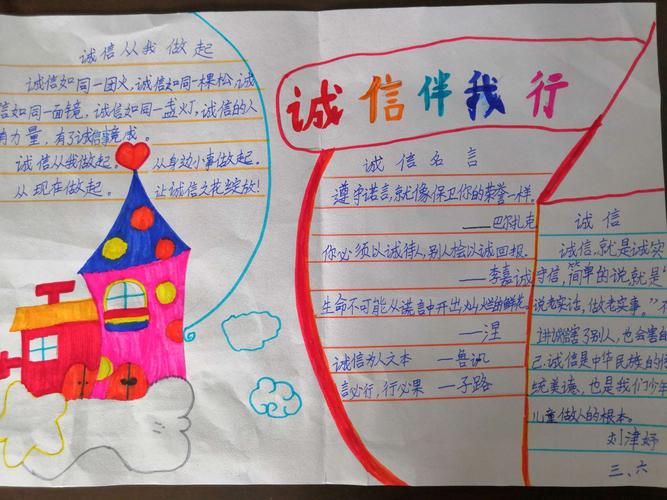 诚信从我做起
诚信如同一团火,诚信如同一棵松,诚
信如同一面镜,诚信如同一盏灯,诚信的人
有力量,有了诚信事竟成。
诚信从我做起。从身边小事做起。
从现在做起。让诚信之花绽放!
诚信伴我行
诚信名言
遵守诺言,就像保卫你的荣誉一样。
——巴尔扎克
你必须以诚待人,别人会以诚回报。
——李嘉诚
生命不可能从谎言中开出灿烂的鲜花。
——涅
诚信为人之本 —鲁迅
言必行,行必果 —子路
诚信
诚信,就是诚实
守信,简单的说,就是
说老实话,做老实事。"不
讲诚信害了别人,也会害自
己.诚信是中华民族的传
统美德,也是我们少年
儿童做人的根本。
刘津妤
三、六